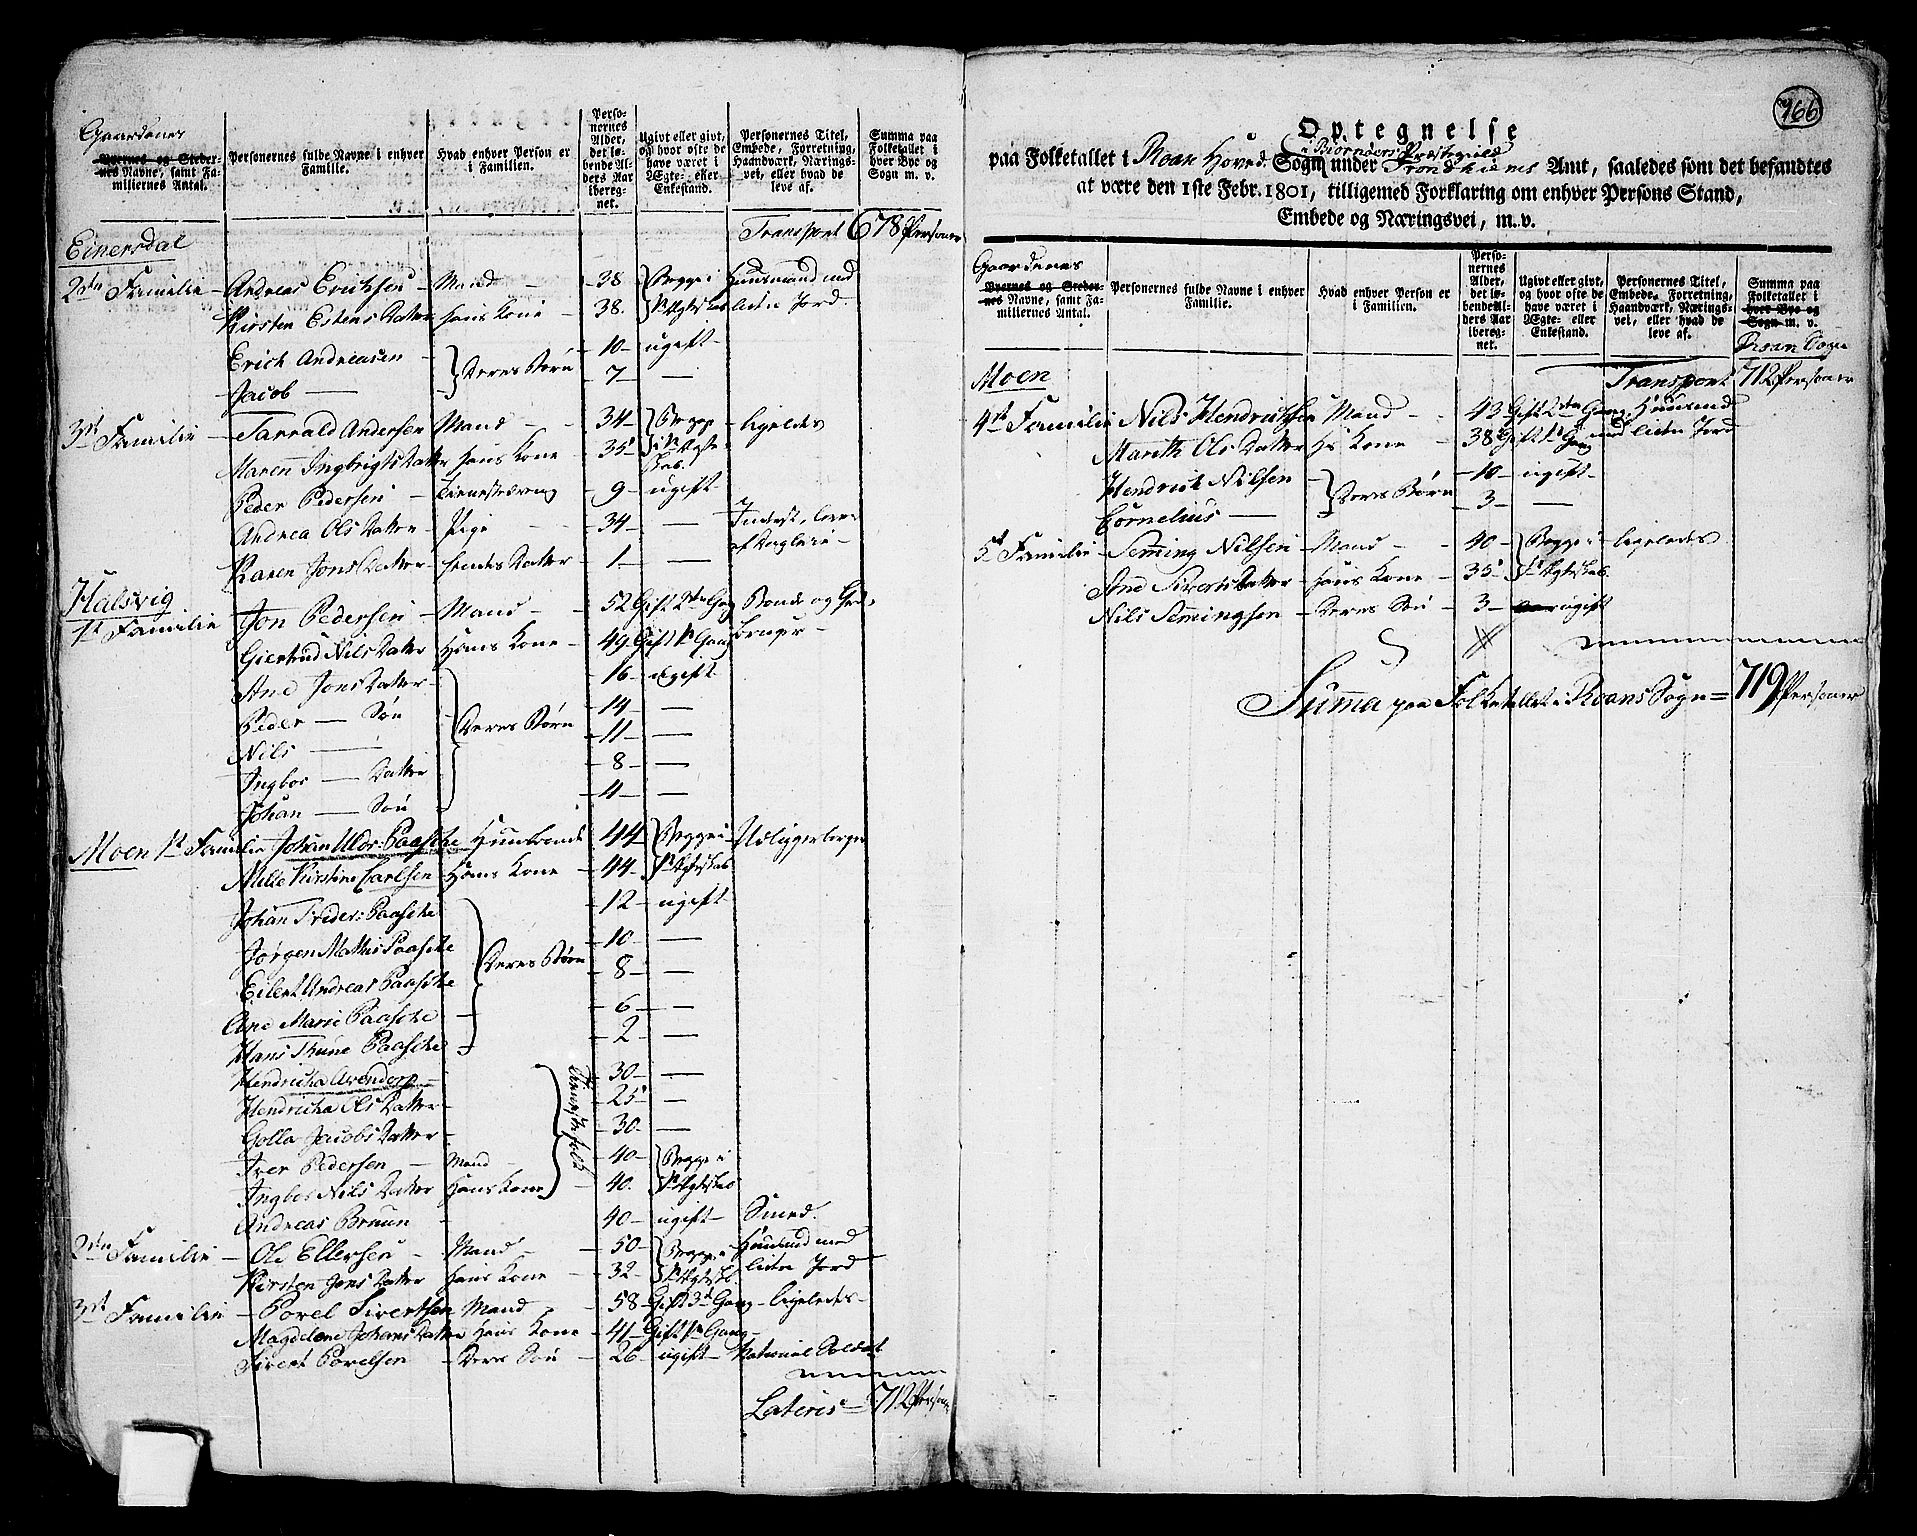 Gaardenes
Byernes og Stedernes Navne, samt Familiernes Antal.
Personernes fulde Navne i enhver Familie.
Hvad enhver Person er i Familien.
Personernes Alder, det løbende Alders Aar iberegnet.
Ugivt eller givt, og hvor ofte de have været i Ægte- eller Enkestand.
Personernes Titel, Embede, Forretning, Haandværk, Næringsvei, eller hvad de leve af.
Summa paa Folketallet i hver Bye og Sogn m. v.
Transport 678 Personer
Einersdal
2den Familie - Andreas Erichsen - Mand - 38 Begge i Huusmand med
Kirsten Estens Datter hans Kone - 38. 1ste Ægteskab liden Jord
Erich Andreasen - Deres Børn - 10 - ugift -
Jacob — - 7 - —
3die Familie - Tarrald Andersen Mand - 34 - Begge - ligeledes
Maren Ingbrigts Datter Hans Kone - 35 i 1ste Ægteskab.
Peder Pedersen - Tienestedreng - 9 - ugift -
Andrea Ols Datter - Pige - 34 - — Inderst, lever af Dagleie -
Karen Jons Datter - hendes Datter - 1 - —
Halsvig
1ste Familie Jon Pedersen - Mand - 52 Gift 2den Gang Bonde og Gaardbruger -
Giertrud Nils Datter Hans Kone - 49 - Gift 1ste Gang
Ane Jons Datter - Deres Børn - 16 - ugift
Peder — Søn - 14 - —
Nils — - 11 - —
Ingbor — Datter - 8 - —
Johan — Søn - 4 - —
Moen 1ste Familie - Johan Uldr: Paasche Huusbonde - 44 Begge i Udliggerborger
Mille Kirstine Carlsen Hans Kone - 44 - 1ste Ægteskab
Johan Frider: Paasche - Deres Børn - 12 - ugift
Jørgen Mathis Paasche - 10 - —
Eilert Andreas Paasche - 8 - —
Ane Marie Paasche - 6 - —
Hans Thune Paasche - 2 - —
Hendricha Arendorp - Tienestefolk - 30 - —
Hendricha Ols Datter - 25 - —
Golla Jacobs Datter - 30 - —
Iver Pedersen - Mand - 40 - Begge i
Ingbor Nils Datter Hans Kone - 40. 1ste Ægteskab
Andreas Bruun - 40 - ugift - Smed.
2den Familie - Ole Ellersen - Mand - 50 - Begge i Huusmd med
Kirsten Jons Datter hans Kone - 32 - 1ste Ægteskb liden Jord
3die Familie - Povel Sivertsen Mand - 58 - Gift 3die Gang - ligeledes -
Magdelene Johans Datter Hans Kone - 41 - Gift 1ste Gang -
Sivert Povelsen - Deres Søn - 26 - ugift - National Soldat
Lateris = 712 Personer
766
Optegnelse
paa Folketallet i Roan Hoved Sogn i Biørnørs Præstegield under Trondhiems Amt, saaledes som det befandtes
at være den 1ste Febr. 1801, tilligemed Forklaring om enhver Persons Stand,
Embede og Næringsvei, m. v.
Gaardenes
Byernes og Stedernes Navne, samt Familiernes Antal.
Personernes fulde Navne i enhver Familie.
Hvad enhver Person er i Familien.
Personernes Alder, det løbende Alders Aar iberegnet.
Ugivt eller givt, og hvor ofte de have været i Ægte- eller Enkestand.
Personernes Titel, Embede, Forretning, Haandværk, Næringsvei, eller hvad de leve af.
Summa paa Folketallet i hver Bye og Sogn m. v.
Roan Sogn
Moen Transport 712 Personer
4de Familie Nils Hendrichsen Mand - 43 Gift 2den Gang Huusmd
Mareth Ols Datter Hs Kone - 38 Gift 1ste Gang med liden Jord
Hendrich Nilsen - Deres Børn - 10 - ugift -
Cornelius — - 3 - —
5te Familie - Seming Nilsen - Mand - 40 - Begge i - ligeledes
Ane Siverts Datter - Hans Kone - 35 - 1ste Ægteskab.
Nils Semingsen - Deres Søn - 3 - ugift
Summa paa Folketallet i Roans Sogn = 719 Personer